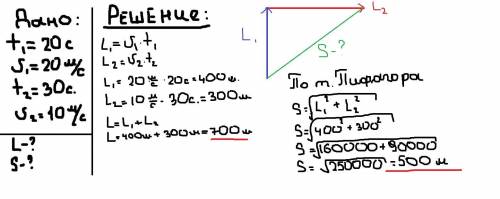 Дано:
t₁=20с
υ₁=20м/с
t₂=30с.
υ₂=10м/с
L-?
S-?
Решение:
L₁=υ₁·t₁
L₂=υ₂·t₂
L₁=20 м/с·20с=400м.
L₂=10 м/с·30с.=300м
L=L₁+L₂
L=400м+300м=700м
L₁
L₂
S-?
По т. Пифагора
S=√L₁²+L₂²
S=√400²+300²
S=√160000+90000
S=√250000=500 м